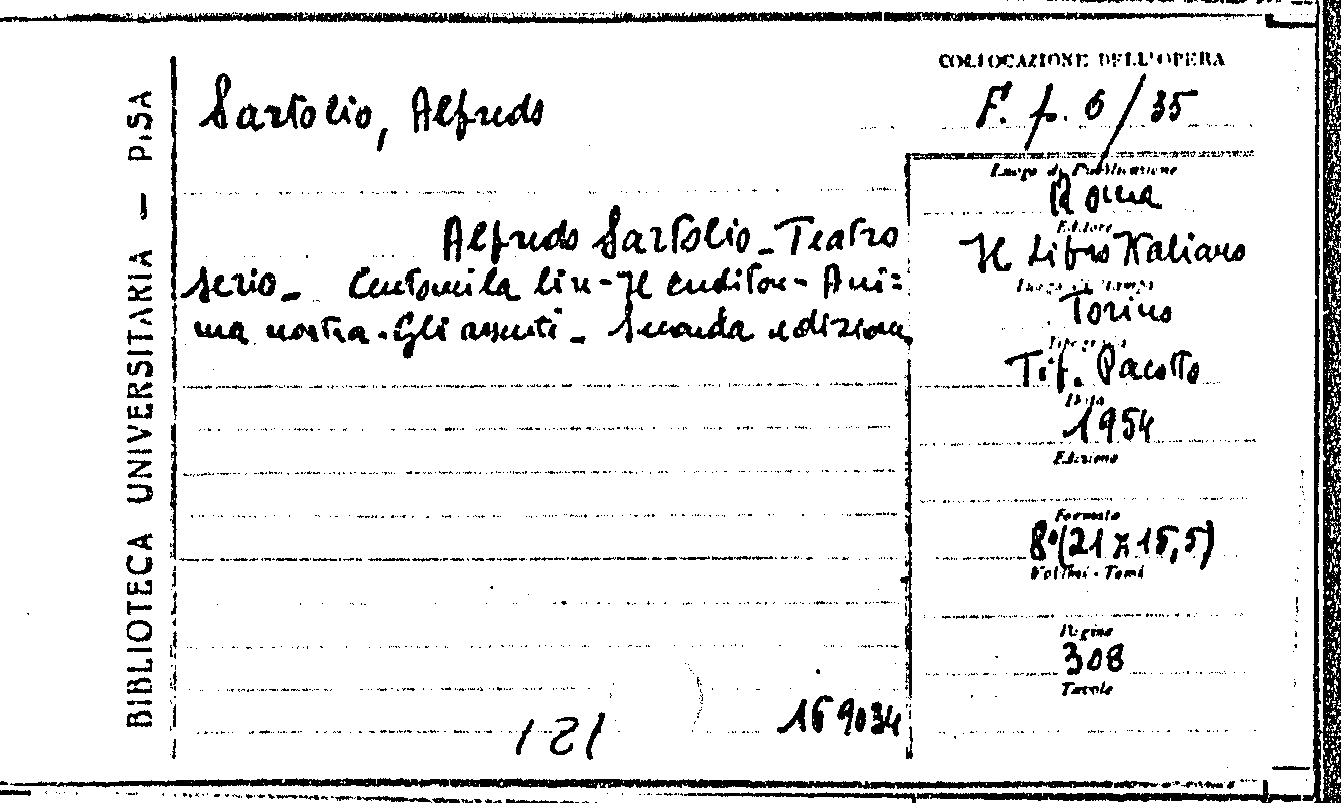 BIBLIOTECA UNIVERSITARIA — PISA
COLLOCAZIONE DELL'OPERA
Sartolio, Alfredo
F. p. 6/35
Luogo di Pubblicazione
Roma
Alfredo Sartolio - Teatro
serio - Centomila lire - Il cuditore - Ani=
ma nostra - Gli assenti - Seconda edizione
Editore
Il Libro Italiano
Luogo di stampa
Torino
Tipografia
Tip. Pacotto
Data
1954
Edizione
Formato
8°(21 x 15,5)
Volumi - Tomi
Pagine
308
Tavole
169034
121